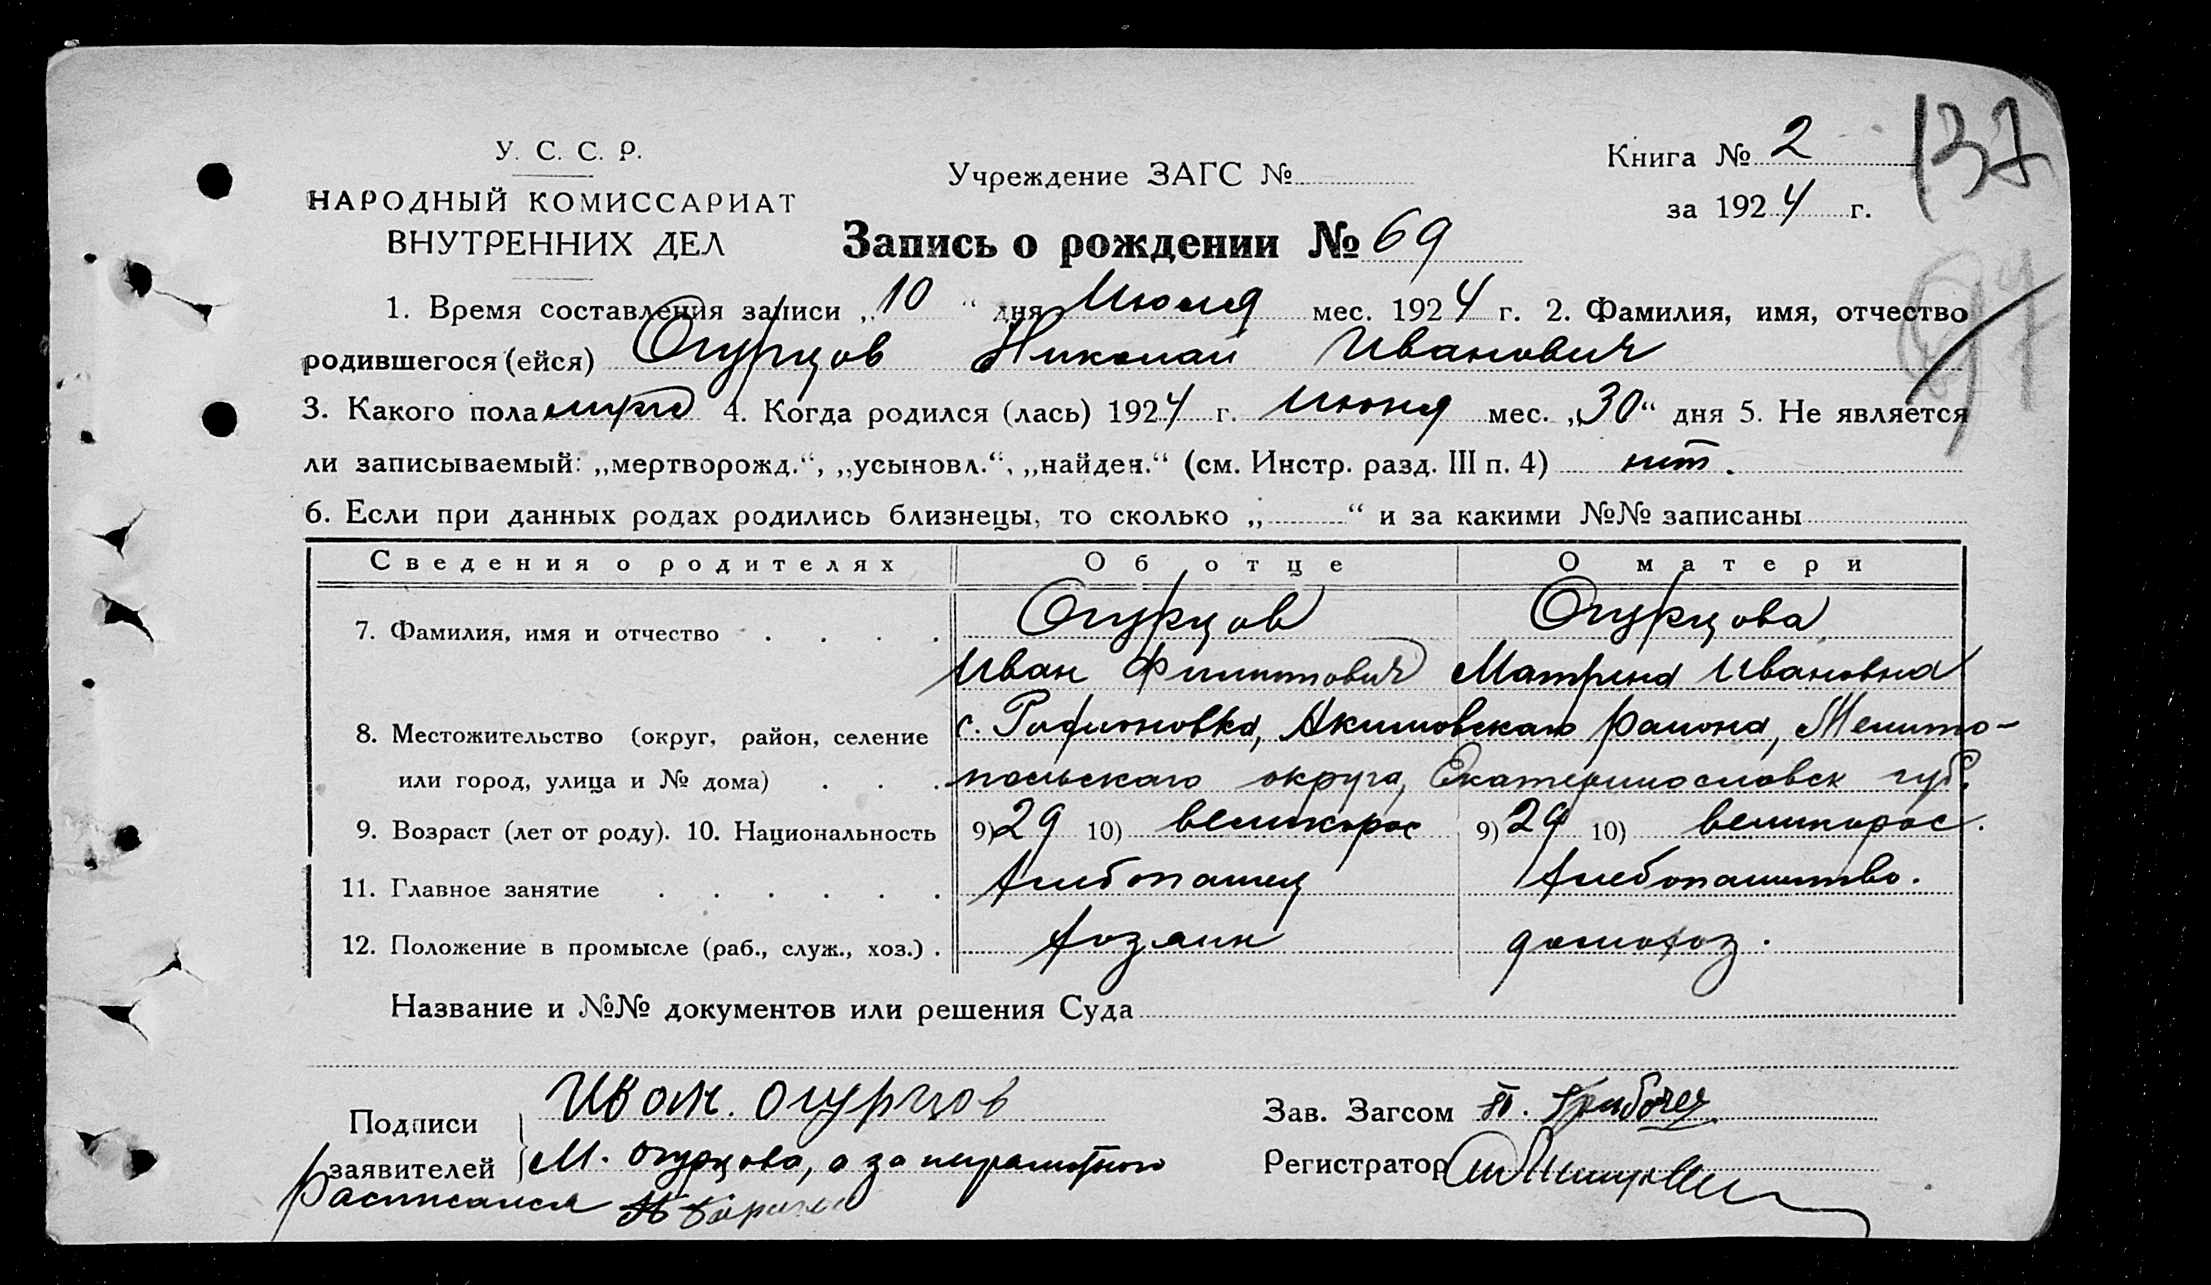 У. С. С. Р.
НАРОДНЫЙ КОМИССАРИАТ
ВНУТРЕННИХ ДЕЛ
Учреждение ЗАГС №
Книга № 2
за 1924 г.
137
Запись о рождении № 69
1. Время составления записи „10“ дня Июля мес. 1924 г. 2. Фамилия, имя, отчество
родившегося (ейся) Огурцов Николай Иванович
3. Какого пола мужс 4. Когда родился (лась) 1924 г. Июня мес. „30“ дня 5. Не является
ли записываемый: „мертворожд.“, „усыновл.“, „найден.“ (см. Инстр. разд. III п. 4) нет.
6. Если при данных родах родились близнецы, то сколько „ “ и за какими №№ записаны
Сведения о родителях Об отце О матери
7. Фамилия, имя и отчество Огурцов Огурцова
Иван Филиппович Матрена Ивановна
8. Местожительство (округ, район, селение с. Родионовка, Акимовскаго района, Мелито-
или город, улица и № дома) польскаго округа, Екатеринославск губ.
9. Возраст (лет от роду). 10. Национальность 9) 29 10) великорос 9) 29 10) великорос.
11. Главное занятие хлебопашец хлебопашество.
12. Положение в промысле (раб., служ., хоз.) хозяин домохоз.
Название и №№ документов или решения Суда
Подписи Иван. Огурцов
заявителей М. Огурцова, а за неграмотного
расписался
Зав. Загсом
Регистратор